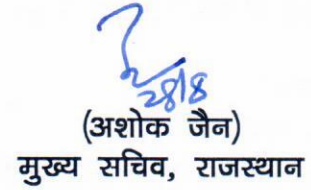 28/8
(अशोक जैन)
मुख्य सचिव, राजस्थान